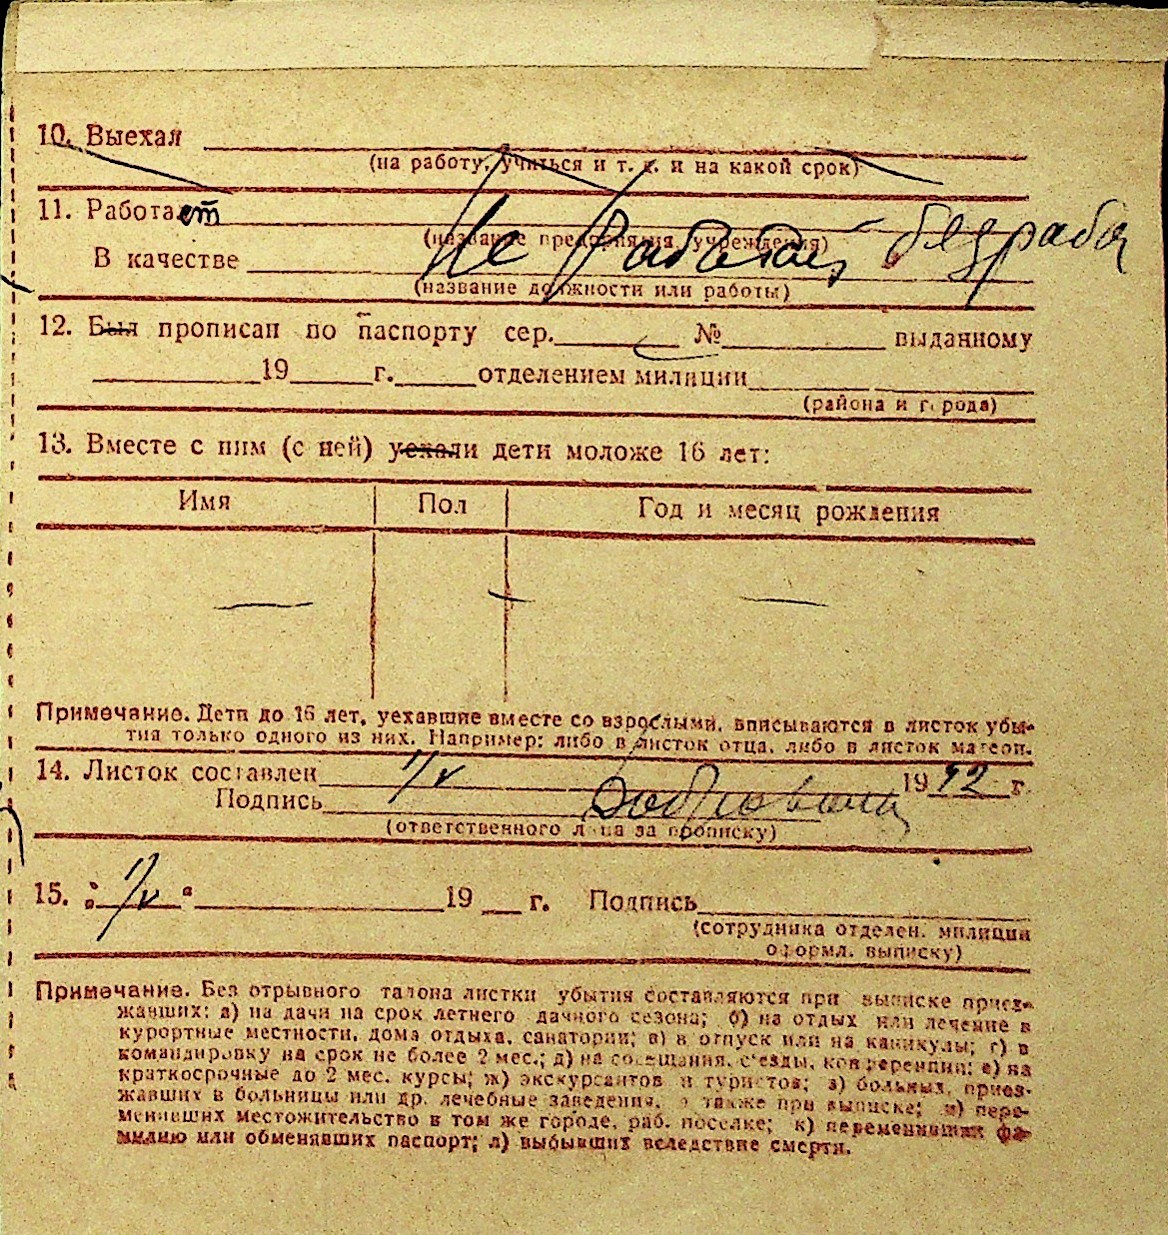 10. Выехал
(на работу, учиться и т. д. и на какой срок)
11. Работает
(название предприятия, учреждения)
Не работает, безраба
В качестве
(название должности или работы)
12. Был прописан по паспорту сер. № выданному
19 г. отделением милиции
(района и города)
13. Вместе с ним (с ней) уехали дети моложе 16 лет:
Имя Пол Год и месяц рождения
Примечание. Дети до 16 лет, уехавшие вместе со взрослыми, вписываются в листок убы-
тия только одного из них. Например: либо в листок отца, либо в листок матери.
14. Листок составлен 1/V 1992 г.
Подпись
(ответственного лица за прописку)
15. „ 1/V “ 19 г. Подпись
(сотрудника отделен. милиции
оформл. выписку)
Примечание. Без отрывного талона листки убытия составляются при выписке приез-
жавших: а) на дачи на срок летнего дачного сезона; б) на отдых или лечение в
курортные местности, дома отдыха, санатории; в) в отпуск или на каникулы; г) в
командировку на срок не более 2 мес.; д) на совещания, съезды, конференции; е) на
краткосрочные до 2 мес. курсы; ж) экскурсантов и туристов; з) больных, приез-
жавших в больницы или др. лечебные заведения, а также при выписке; и) пере-
менивших местожительство в том же городе, раб. поселке; к) переменивших фа-
милию или обменявших паспорт; л) выбывших вследствие смерти.